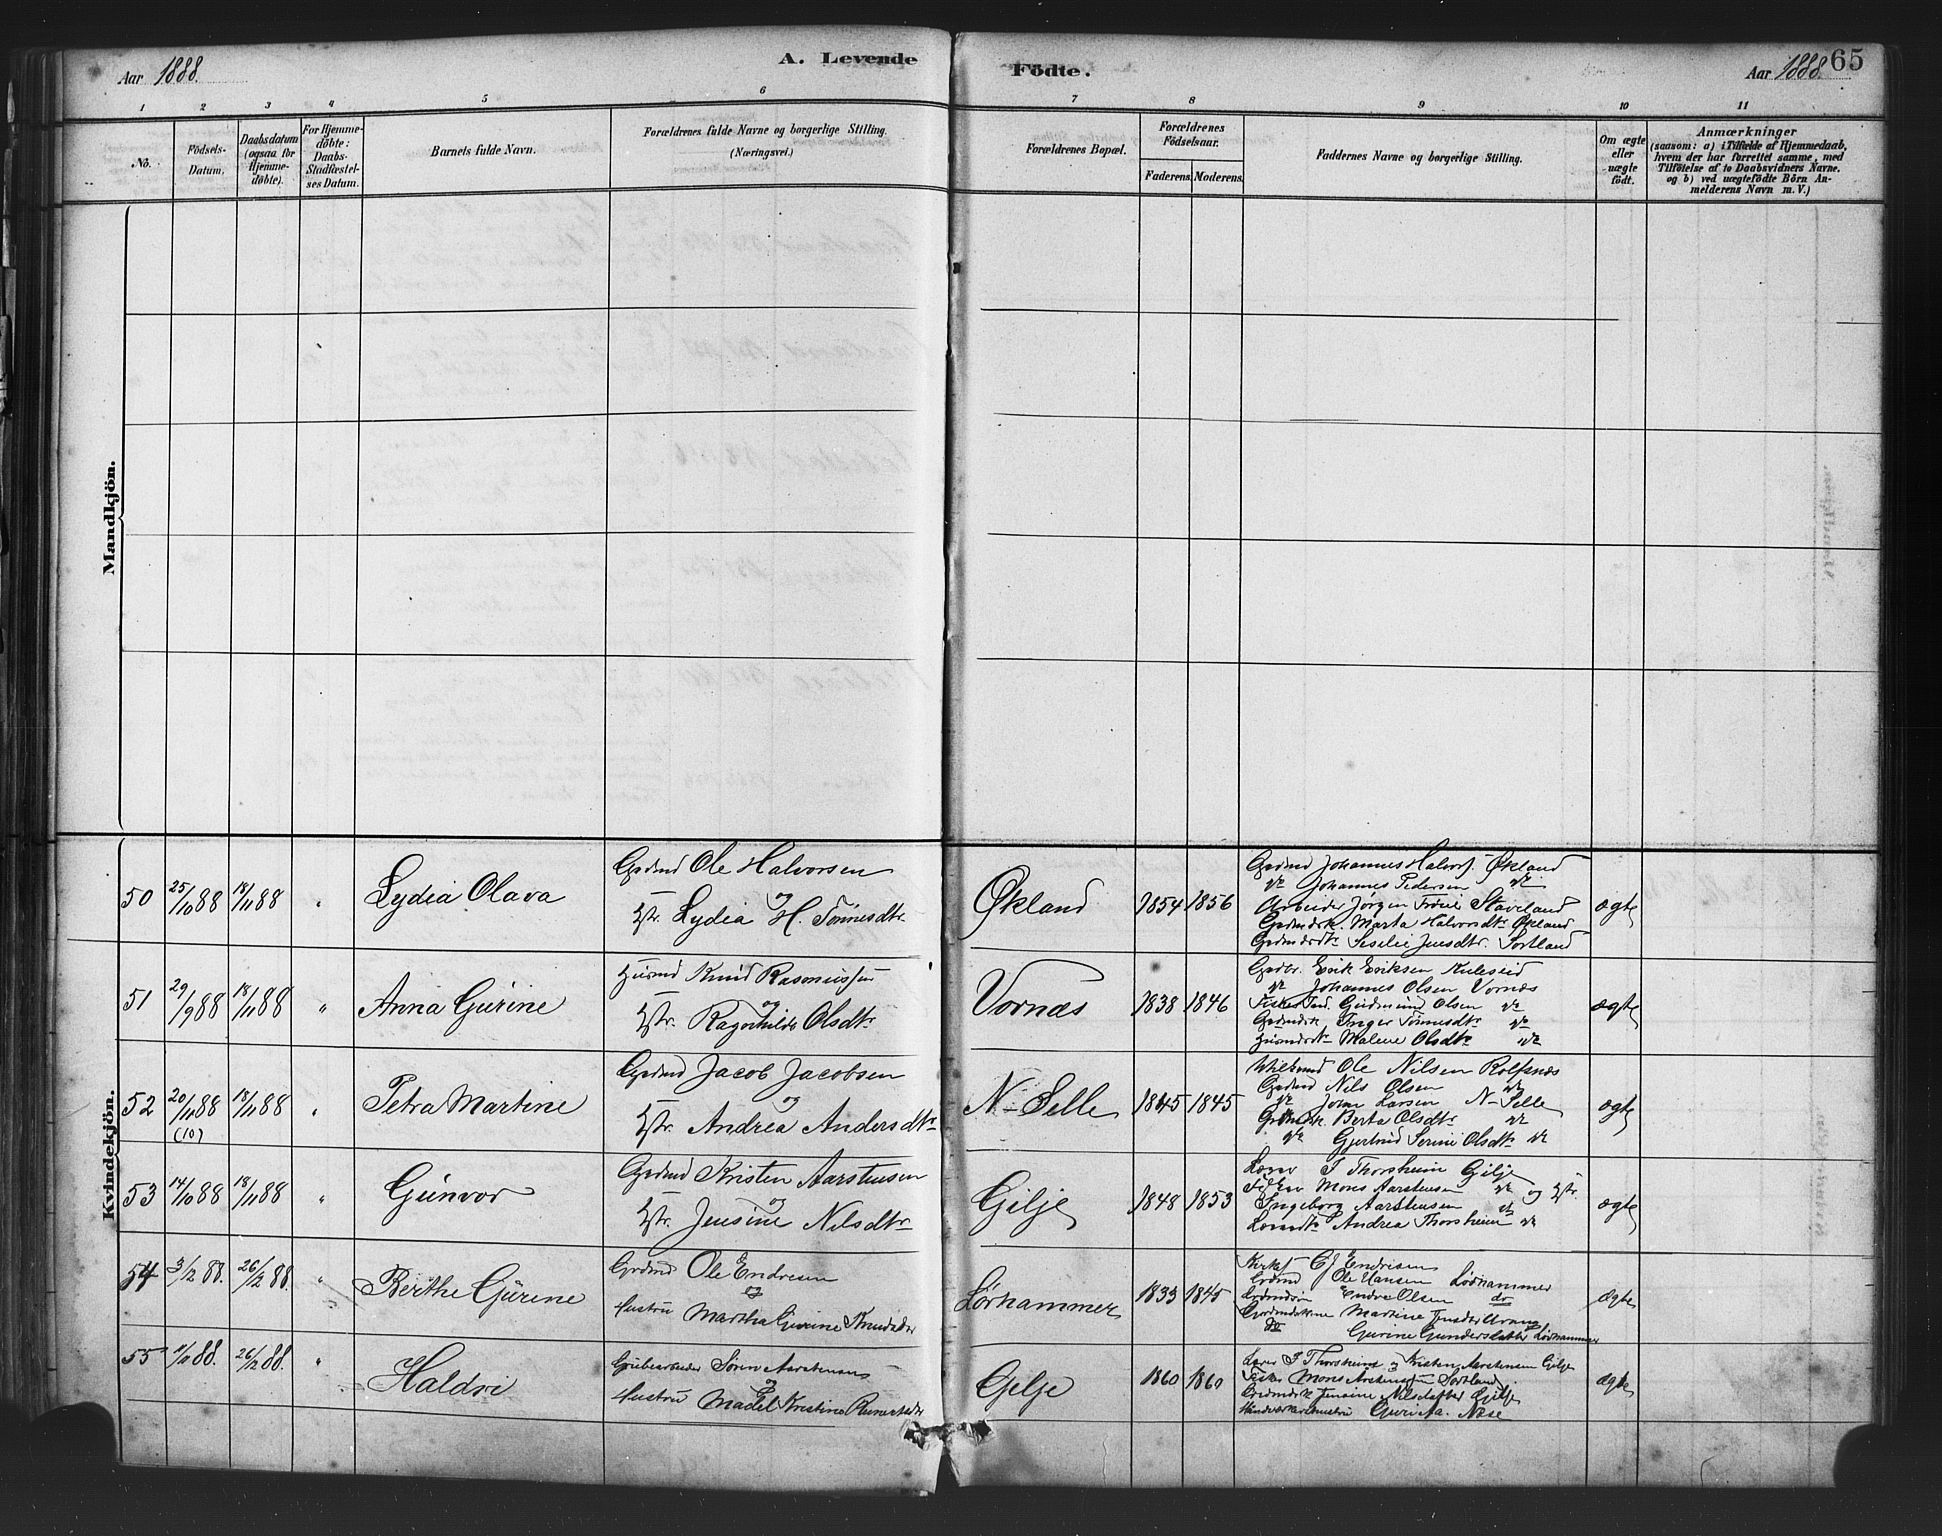 Aar 1888.
A. Levende
Födte.
Aar 1888
65
1 2 3 4 5 6 7 8 9 10 11
No.
Födsels-
Datum.
Daabsdatum
(ogsaa for
Hjemme-
døbte).
For Hjemme-
döbte:
Daabs-
Stadfæstel-
ses Datum.
Barnets fulde Navn.
Forældrenes fulde Navne og borgerlige Stilling.
(Næringsvei.)
Forældrenes Bopæl.
Forældrenes
Födselsaar.
Faderens. Moderens.
Faddernes Navne og borgerlige Stilling.
Om ægte
eller
uægte
födt.
Anmærkninger
(saasom: a) i Tilfælde af Hjemmedaab,
hvem der har forrettet samme, med
Tilföielse af to Daabsvidners Navne.
og b) ved uægtefödte Börn An-
melderens Navn m. V.)
Mandkjön.
Kvindekjön.
50 25/10 88 18/11 88 " Lydia Olava
Grdmd Ole Halvorsen
og
Hstr. Lydia H. Tönnesdtr.
Økland 1854 1856
Grdmd Johannes Halvors. Økland
Johannes Pedersen
Arbeider Jørgen Staveland
Marta Halvorsdtr Økland
Jensdtr. Sortland
ægte
51 29/9 88 18/11 88 " Anna Gurine
Husmd Knud Rasmussen
og
Hstr. Ragnhilde Olsdtr
Vornæs 1838 1846
Grdbr. Erik Eriksen Kuleseid
Johannes Olsen Vornæs
Gudmund Olsen
Inger Tönnesdtr
Malene Olsdtr
ægte
52 20/11 88 18/11 88 " Petra Martine
(10)
Grdmd Jacob Jacobsen
og
Hstr. Andrea Andersdtr
N-Selle 1845 1845
Ole Nilsen Rolfsnæs
Grdmd Nils Olsen
Larsen N-Selle
Berta Olsdtr
Gjertrud Serine Olsdtr
ægte
53 14/10 88 18/11 88 " Gunvor
Grdmd Kristen Aarstensen
og
Hstr. Jensine Nilsdtr
Gilje 1848 1853
Lærer I Thorsheim Gilje
Mons Aarstensen og Hstr.
Ingeborg Aarstensen
Andrea Thorsheim
ægte
54 3/12 88. 26/12 88. " Berthe Gurine
Grdmd Ole Endresen
og
Hustru Martha Gurine Knudsdtr
Lørhammer 1833 1845
Endresen
Grdmd Ole Hansen Lørhammer
Endre Olsen do
Martine
do Gurine Gundersdatter Lørhammer
ægte
55 1/11 88. 26/12 88. " Haldri
Grubearbeider Sören Aarstensen
og
Hustru Madel Kristine
Gilje 1860 1860
Lærer I Thorsheim og Kristen Aarstensen Gilje
Mons Sortland
Jensine Nilsdatter Gilje
Næse
ægte